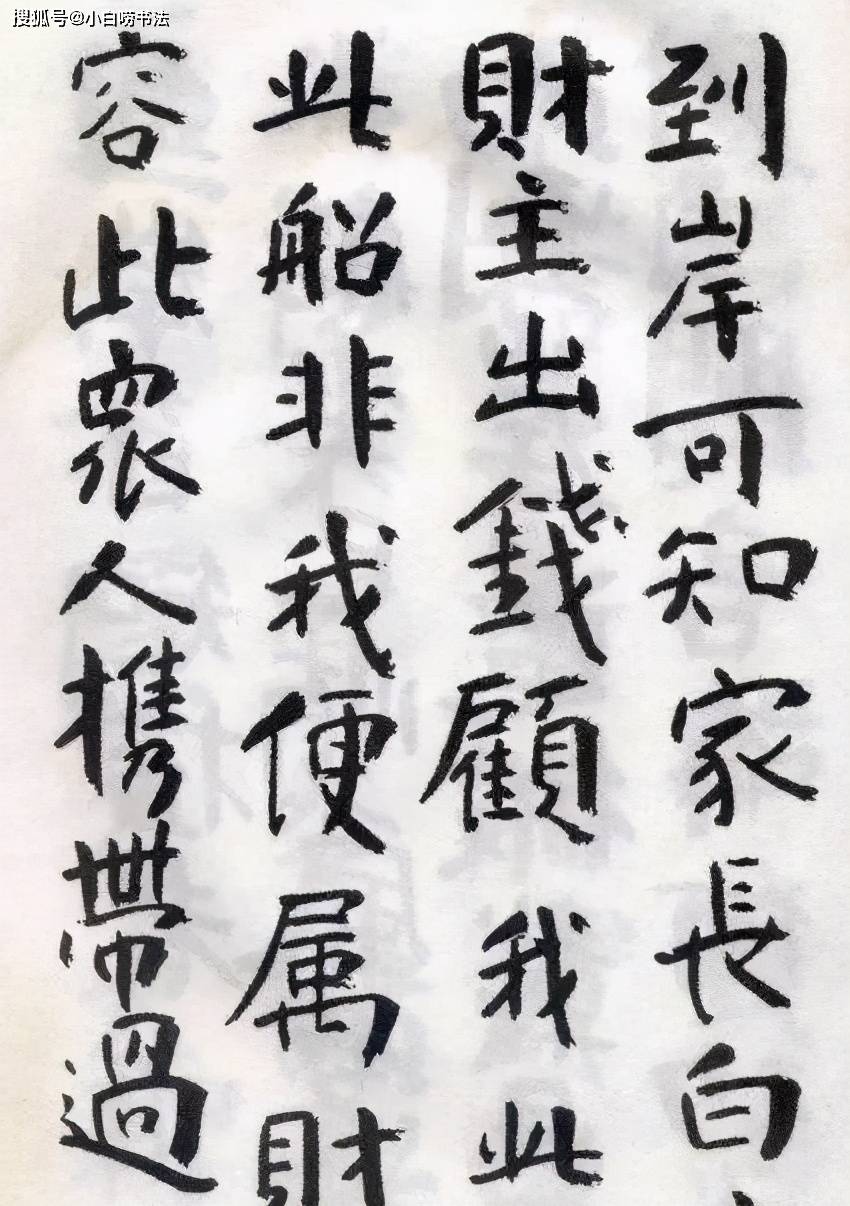 搜狐号@小白唠书法
到岸可知家長白
財主出錢顧我此
此船非我便属財
容此衆人携帶過